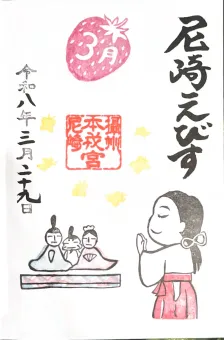 尼崎えびす
3月
攝州
本戎宮
尼崎
令和八年三月二十九日